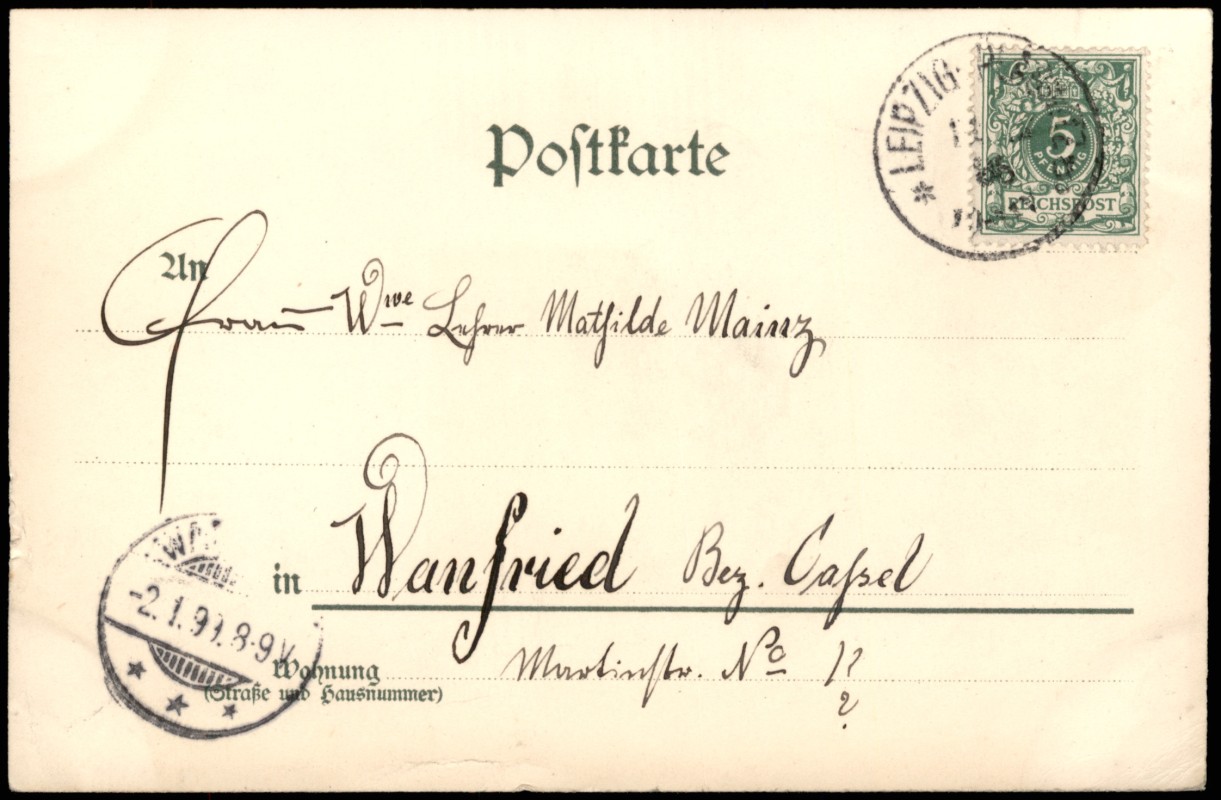 Postkarte
LEIPZIG
5
PFENNIG
REICHSPOST
An
Frau Wwe Lehrer Mathilde Mainz
in Wanfried Bez. Cassel
-2.1.99. 8-9V.
Wohnung Martinstr. No
(Straße und Hausnummer)
?